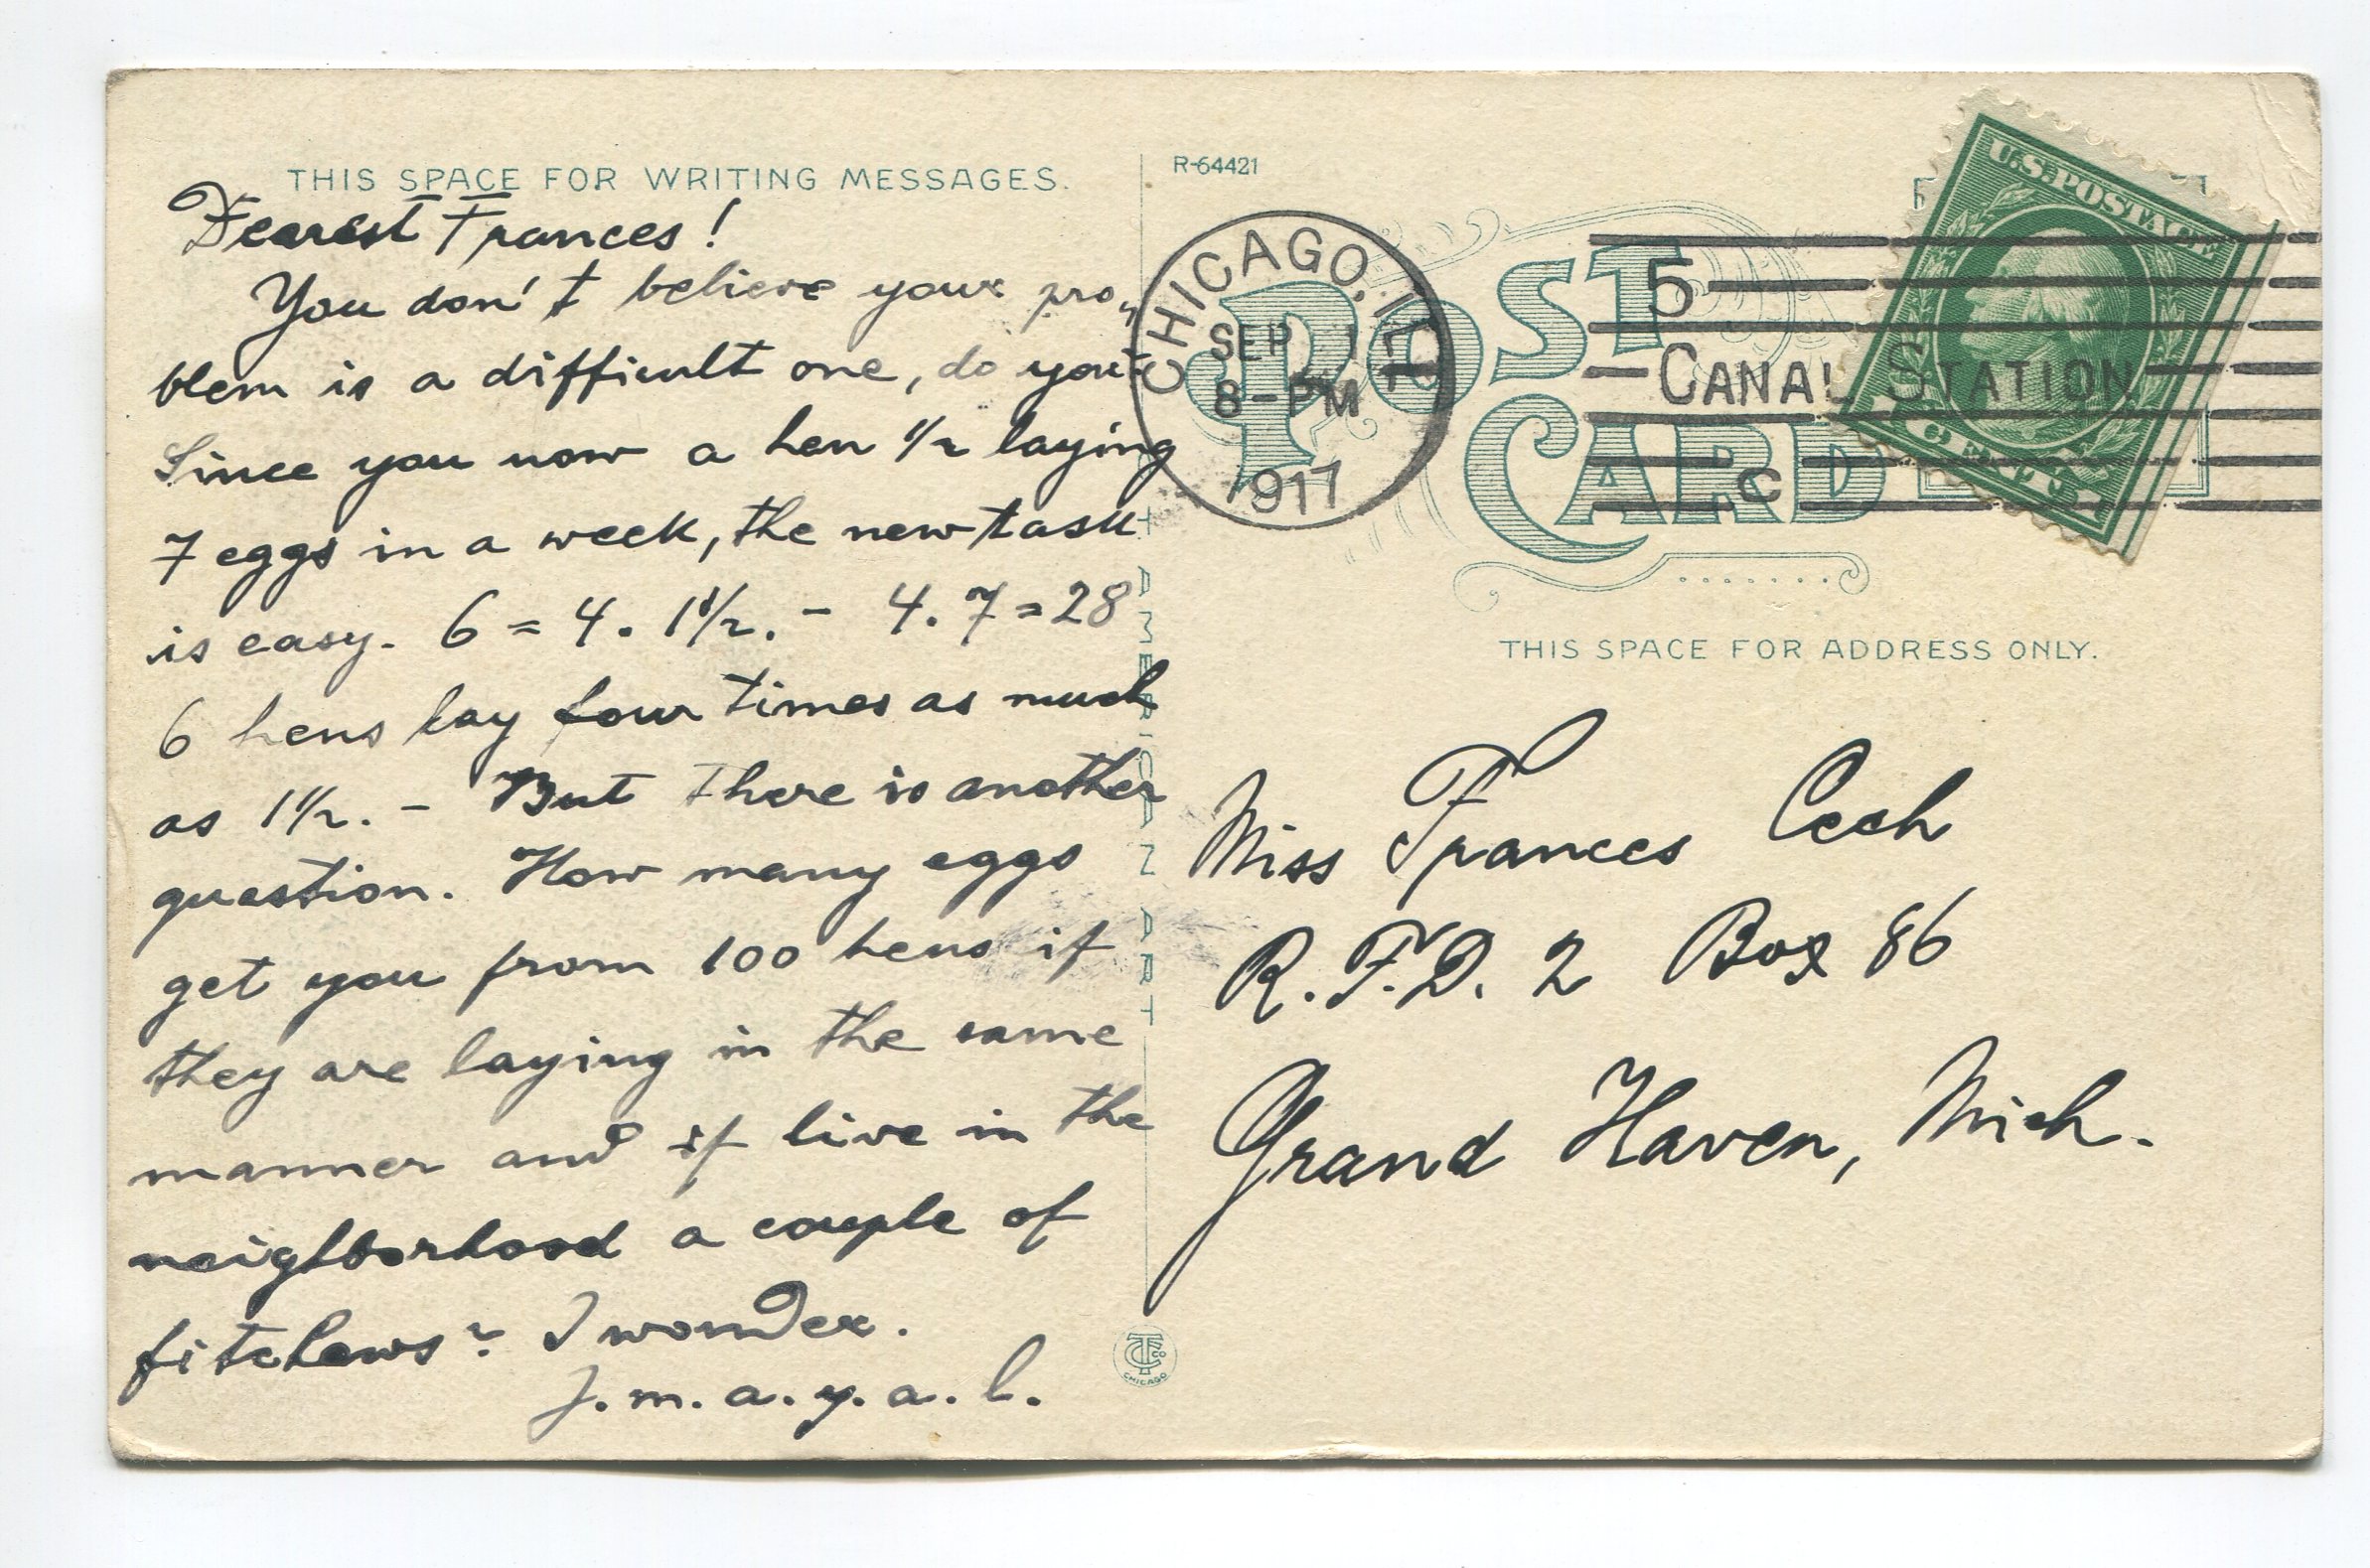 THIS SPACE FOR WRITING MESSAGES.
Dearest Frances!
You don't believe your pro„
blem is a difficult one, do you?
Since you now a hen 1/2 laying
7 eggs in a week, the new task
is easy. 6 = 4. 1 1/2. – 4. 7 = 28
6 hens lay four times as much
as 1 1/2. – But there is another
question. How many eggs
get you from 100 hens if
they are laying in the same
manner and if live in the
neighborhood a couple of
fitchews? I wonder.
J. m. a. y. a. l.
R-64421
POST
CARD
CHICAGO, ILL
SEP 1
8-PM
1917
5
CANAL STATION
C
U.S. POSTAGE
1 CENT 1
AMERICAN ART
THIS SPACE FOR ADDRESS ONLY.
Miss Frances Cech
R.F.D. 2 Box 86
Grand Haven, Mich.
CTCO
CHICAGO